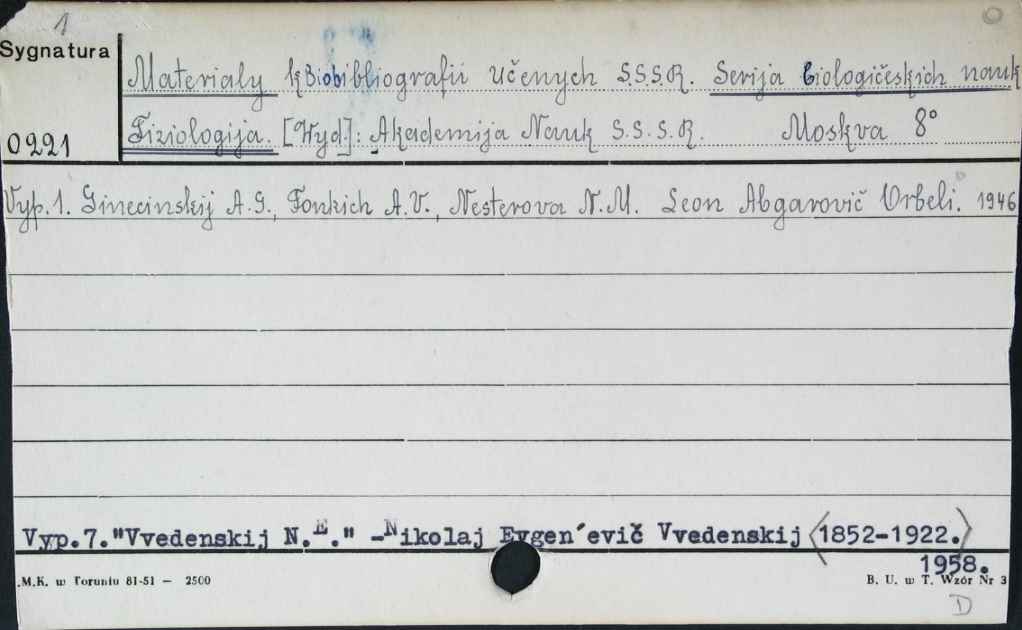 1
O
Sygnatura
Materialy k Biobibliografii Učenych S.S.S.R. Serija biologičeskich nauk
0221
Fiziologija. [Wyd]: Akademija Nauk S.S.S.R. Moskva 8°
Vyp. 1. Ginecinskij A.G., Fonkich A.V., Nesterova N.M. Leon Abgarovič Orbeli. 1946
Vyp.7."Vvedenskij N.E." -Nikolaj Evgen´evič Vvedenskij (1852-1922.)
1958.
.M.K. w Toruniu 81-51 — 2500
B. U. w T. Wzór Nr 3
D